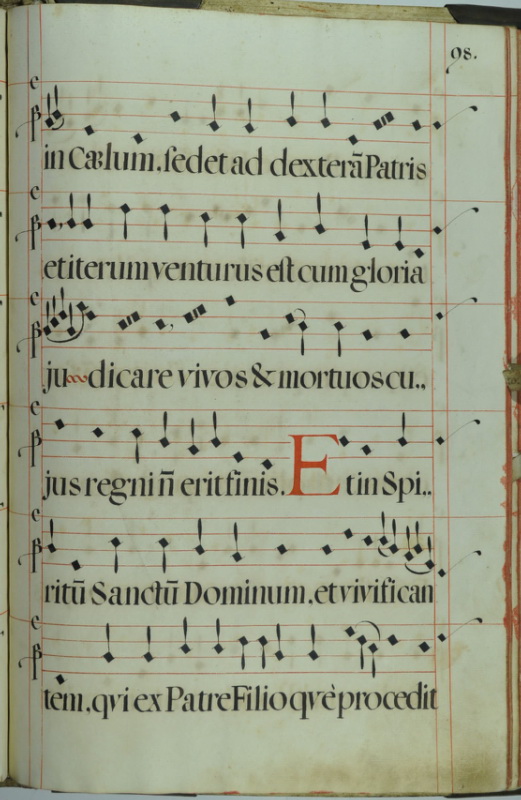 98.
in Cælum, sedet ad dexterã Patris
et iterum venturus est cum gloria
judicare vivos & mortuos cu.,
jus regni ñ erit finis. Et in Spi..
ritũ Sanctũ Dominum, et vivifican
tem, qvi ex Patre Filioqvè procedit